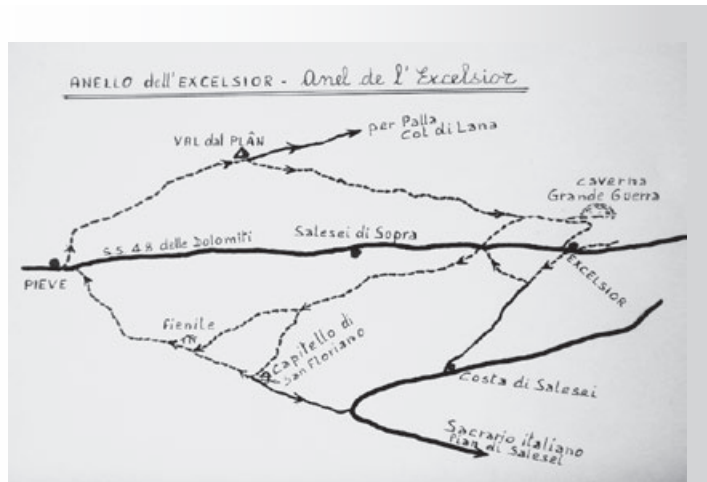 ANELLO dell'EXCELSIOR - Anel de l'Excelsior
VAL dal PLÂN
per Palla
Col di Lana
caverna
Grande Guerra
S.S. 48 delle Dolomiti
Salesei di Sopra
PIEVE
EXCELSIOR
fienile
Capitello di
San Floriano
Costa di Salesei
Sacrario italiano
Pian di Salesei